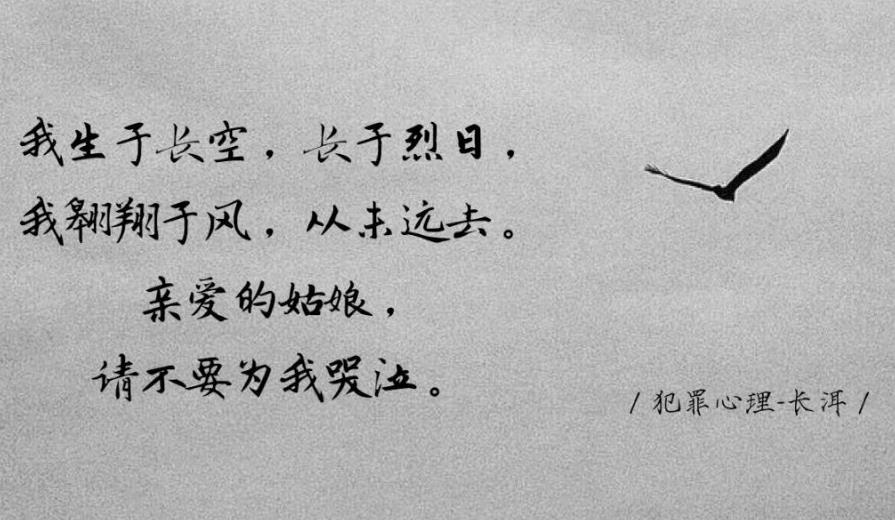 我生于长空，长于烈日，
我翱翔于风，从未远去。
亲爱的姑娘，
请不要为我哭泣。
/犯罪心理-长洱/